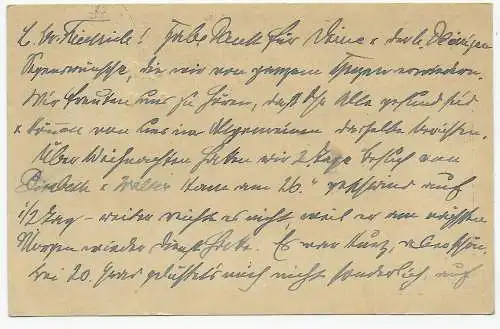 L. Br. Friedrich! Habe Dank für Deine & der l. Deinigen
Segenswünsche, die wir von ganzem Herzen erwidern.
Wir freuten uns zu hören, daß Ihr Alle gesund seid
& können von uns im Allgemeinen dasselbe berichten.
Über Weihnachten hatten wir 2 Tage Besuch von
& Walter kam am 26. auf
1/2 Tag – weiter reichte es nicht weil er am nächsten
Morgen wieder Dienst hatte. Es war kurz, aber schön.
bei 20 Grad mich nicht sonderlich auf